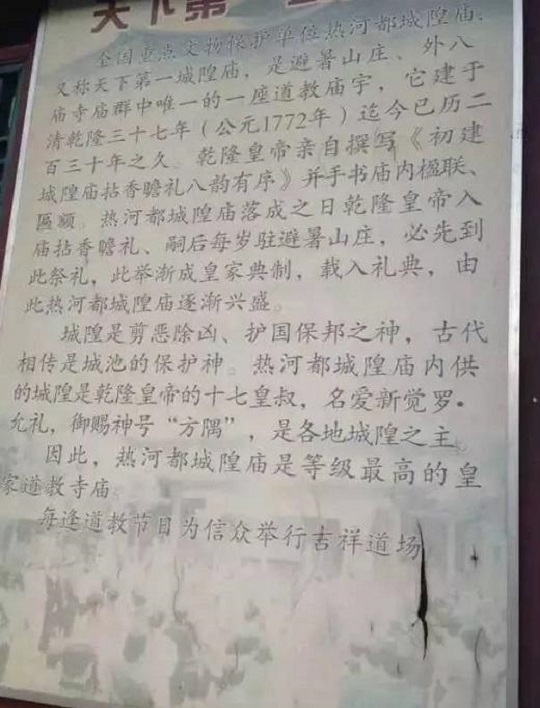 天下第一
全国重点文物保护单位热河都城隍庙，
又称天下第一城隍庙，是避暑山庄、外八
庙寺庙群中唯一的一座道教庙宇，它建于
清乾隆三十七年（公元1772年）迄今已历二
百三十年之久。乾隆皇帝亲自撰写《初建
城隍庙拈香瞻礼八韵有序》并手书庙内楹联、
匾额。热河都城隍庙落成之日乾隆皇帝入
庙拈香瞻礼、嗣后每岁驻避暑山庄，必先到
此祭礼，此举渐成皇家典制，载入礼典，由
此热河都城隍庙逐渐兴盛。
城隍是剪恶除凶、护国保邦之神，古代
相传是城池的保护神。热河都城隍庙内供
的城隍是乾隆皇帝的十七皇叔，名爱新觉罗·
允礼，御赐神号“方隅”，是各地城隍之主。
因此，热河都城隍庙是等级最高的皇
家道教寺庙。
每逢道教节日为信众举行吉祥道场